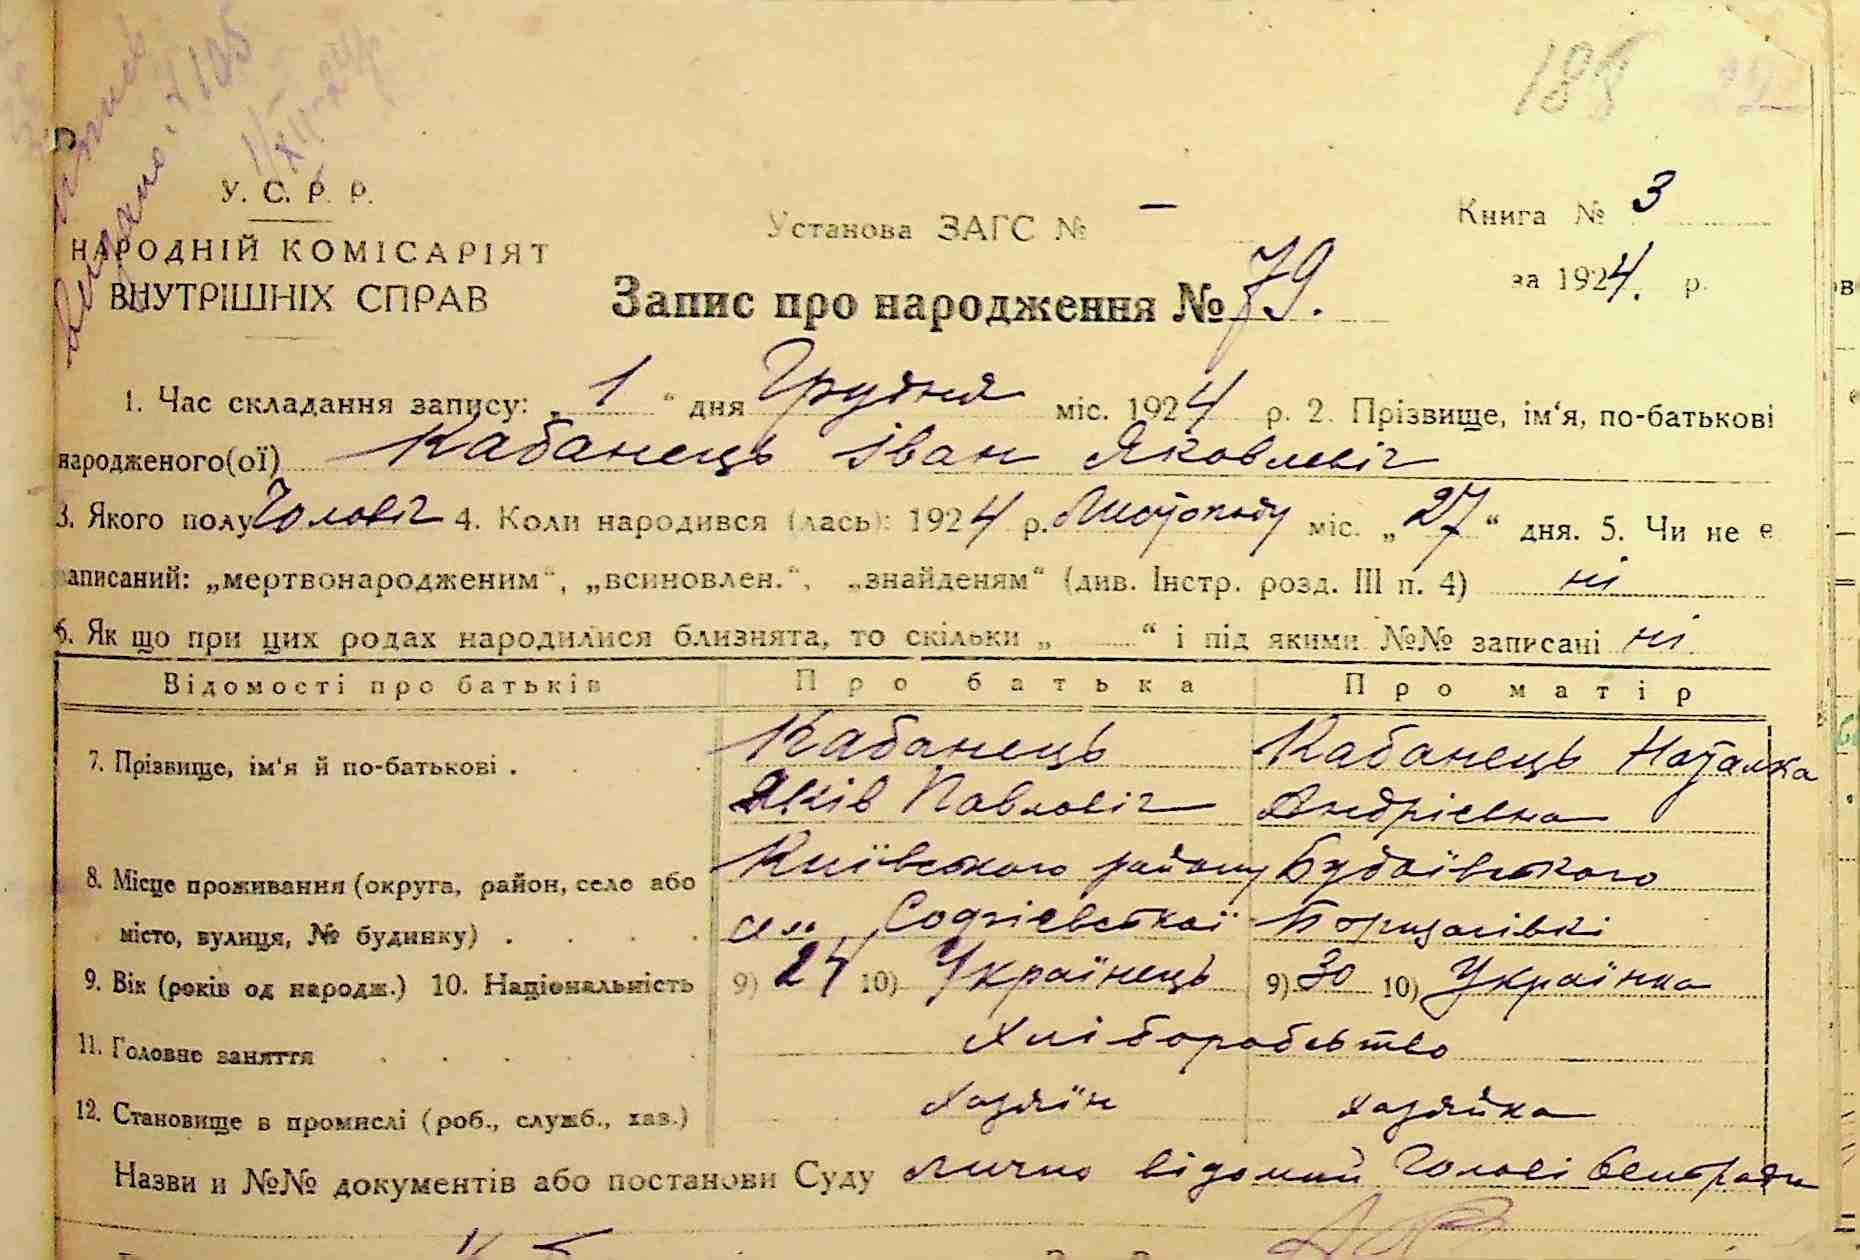 188
Видано
У. С. Р. Р.
НАРОДНІЙ КОМІСАРІЯТ
ВНУТРІШНІХ СПРАВ
Установа ЗАГС № —
Книга № 3
за 1924. р.
Запис про народження № 79.
1. Час складання запису: „ 1 “ дня Грудня міс. 1924 р. 2. Прізвище, ім‘я, по-батькові
народженого(ої) Кабанець Іван Яковлевіч
3. Якого полу Чоловіч 4. Коли народився (лась): 1924 р. Листопаду міс. „ 27 “ дня. 5. Чи не є
записаний: „мертвонародженим“, „всиновлен.“, „знайденям“ (див. Інстр. розд. III п. 4) ні
6. Як що при цих родах народилися близнята, то скільки „ “ і під якими №№ записані ні.
Відомості про батьків Про батька Про матір
7. Прізвище, ім‘я й по-батькові . Кабанець Кабанець Наталка
Яків Павловіч Андрієвна
8. Місце проживання (округа, район, село або Київського району Будаївського
місто, вулиця, № будинку) . село Софієвської Борщагівкі
9. Вік (років од народж.) 10. Національність 9) 24 10) Українець 9) 30 10) Українка
11. Головне заняття Хліборобство
12. Становище в промислі (роб., служб., хаз.) Хазяїн Хазяйка
Назви и №№ документів або постанови Суду лично відомий Голові Сельради